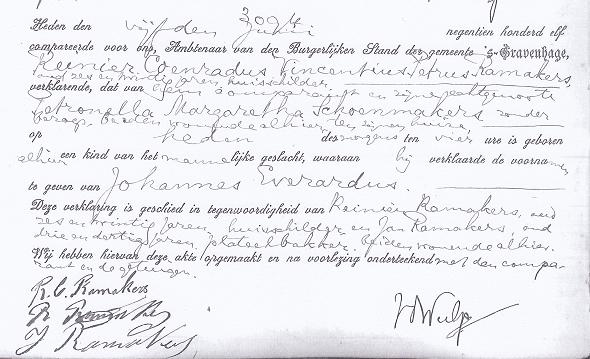 3094
Heden den vijfden Juni negentien honderd elf
compareerde voor ons, Ambtenaar van den Burgerlijken Stand der gemeente 's-Gravenhage,
Reinier Coenradus Vincentius Petrus Ramakers,
oud zes en twintig jaren, huisschilder,
verklarende, dat van hem comparant en zijne echtgenoote
Petronella Margaretha Schoenmakers, zonder
beroep, beiden wonende alhier, ten zijnen huize,
op heden des morgens ten vier ure is geboren
alhier een kind van het mannelijke geslacht, waaraan hij verklaarde de voornamen
te geven van Johannes Everardus.
Deze verklaring is geschied in tegenwoordigheid van Reinier Ramakers, oud
zes en twintig jaren, huisschilder en Jan Ramakers, oud
drie en dertig jaren, banketbakker, beiden wonende alhier.
Wij hebben hiervan deze akte opgemaakt en na voorlezing onderteekend met den compa-
rant en de getuigen.
R. C. Ramakers
R Ramakers
J Ramakers